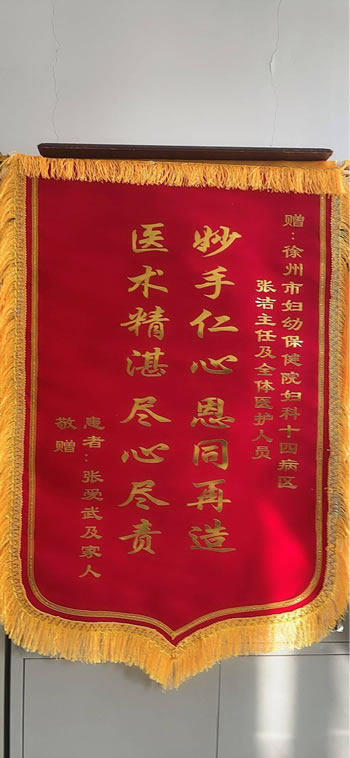 赠：徐州市妇幼保健院妇科十四病区
张洁主任及全体医护人员
妙手仁心 恩同再造
医术精湛 尽心尽责
患者：张爱武及家人
敬赠